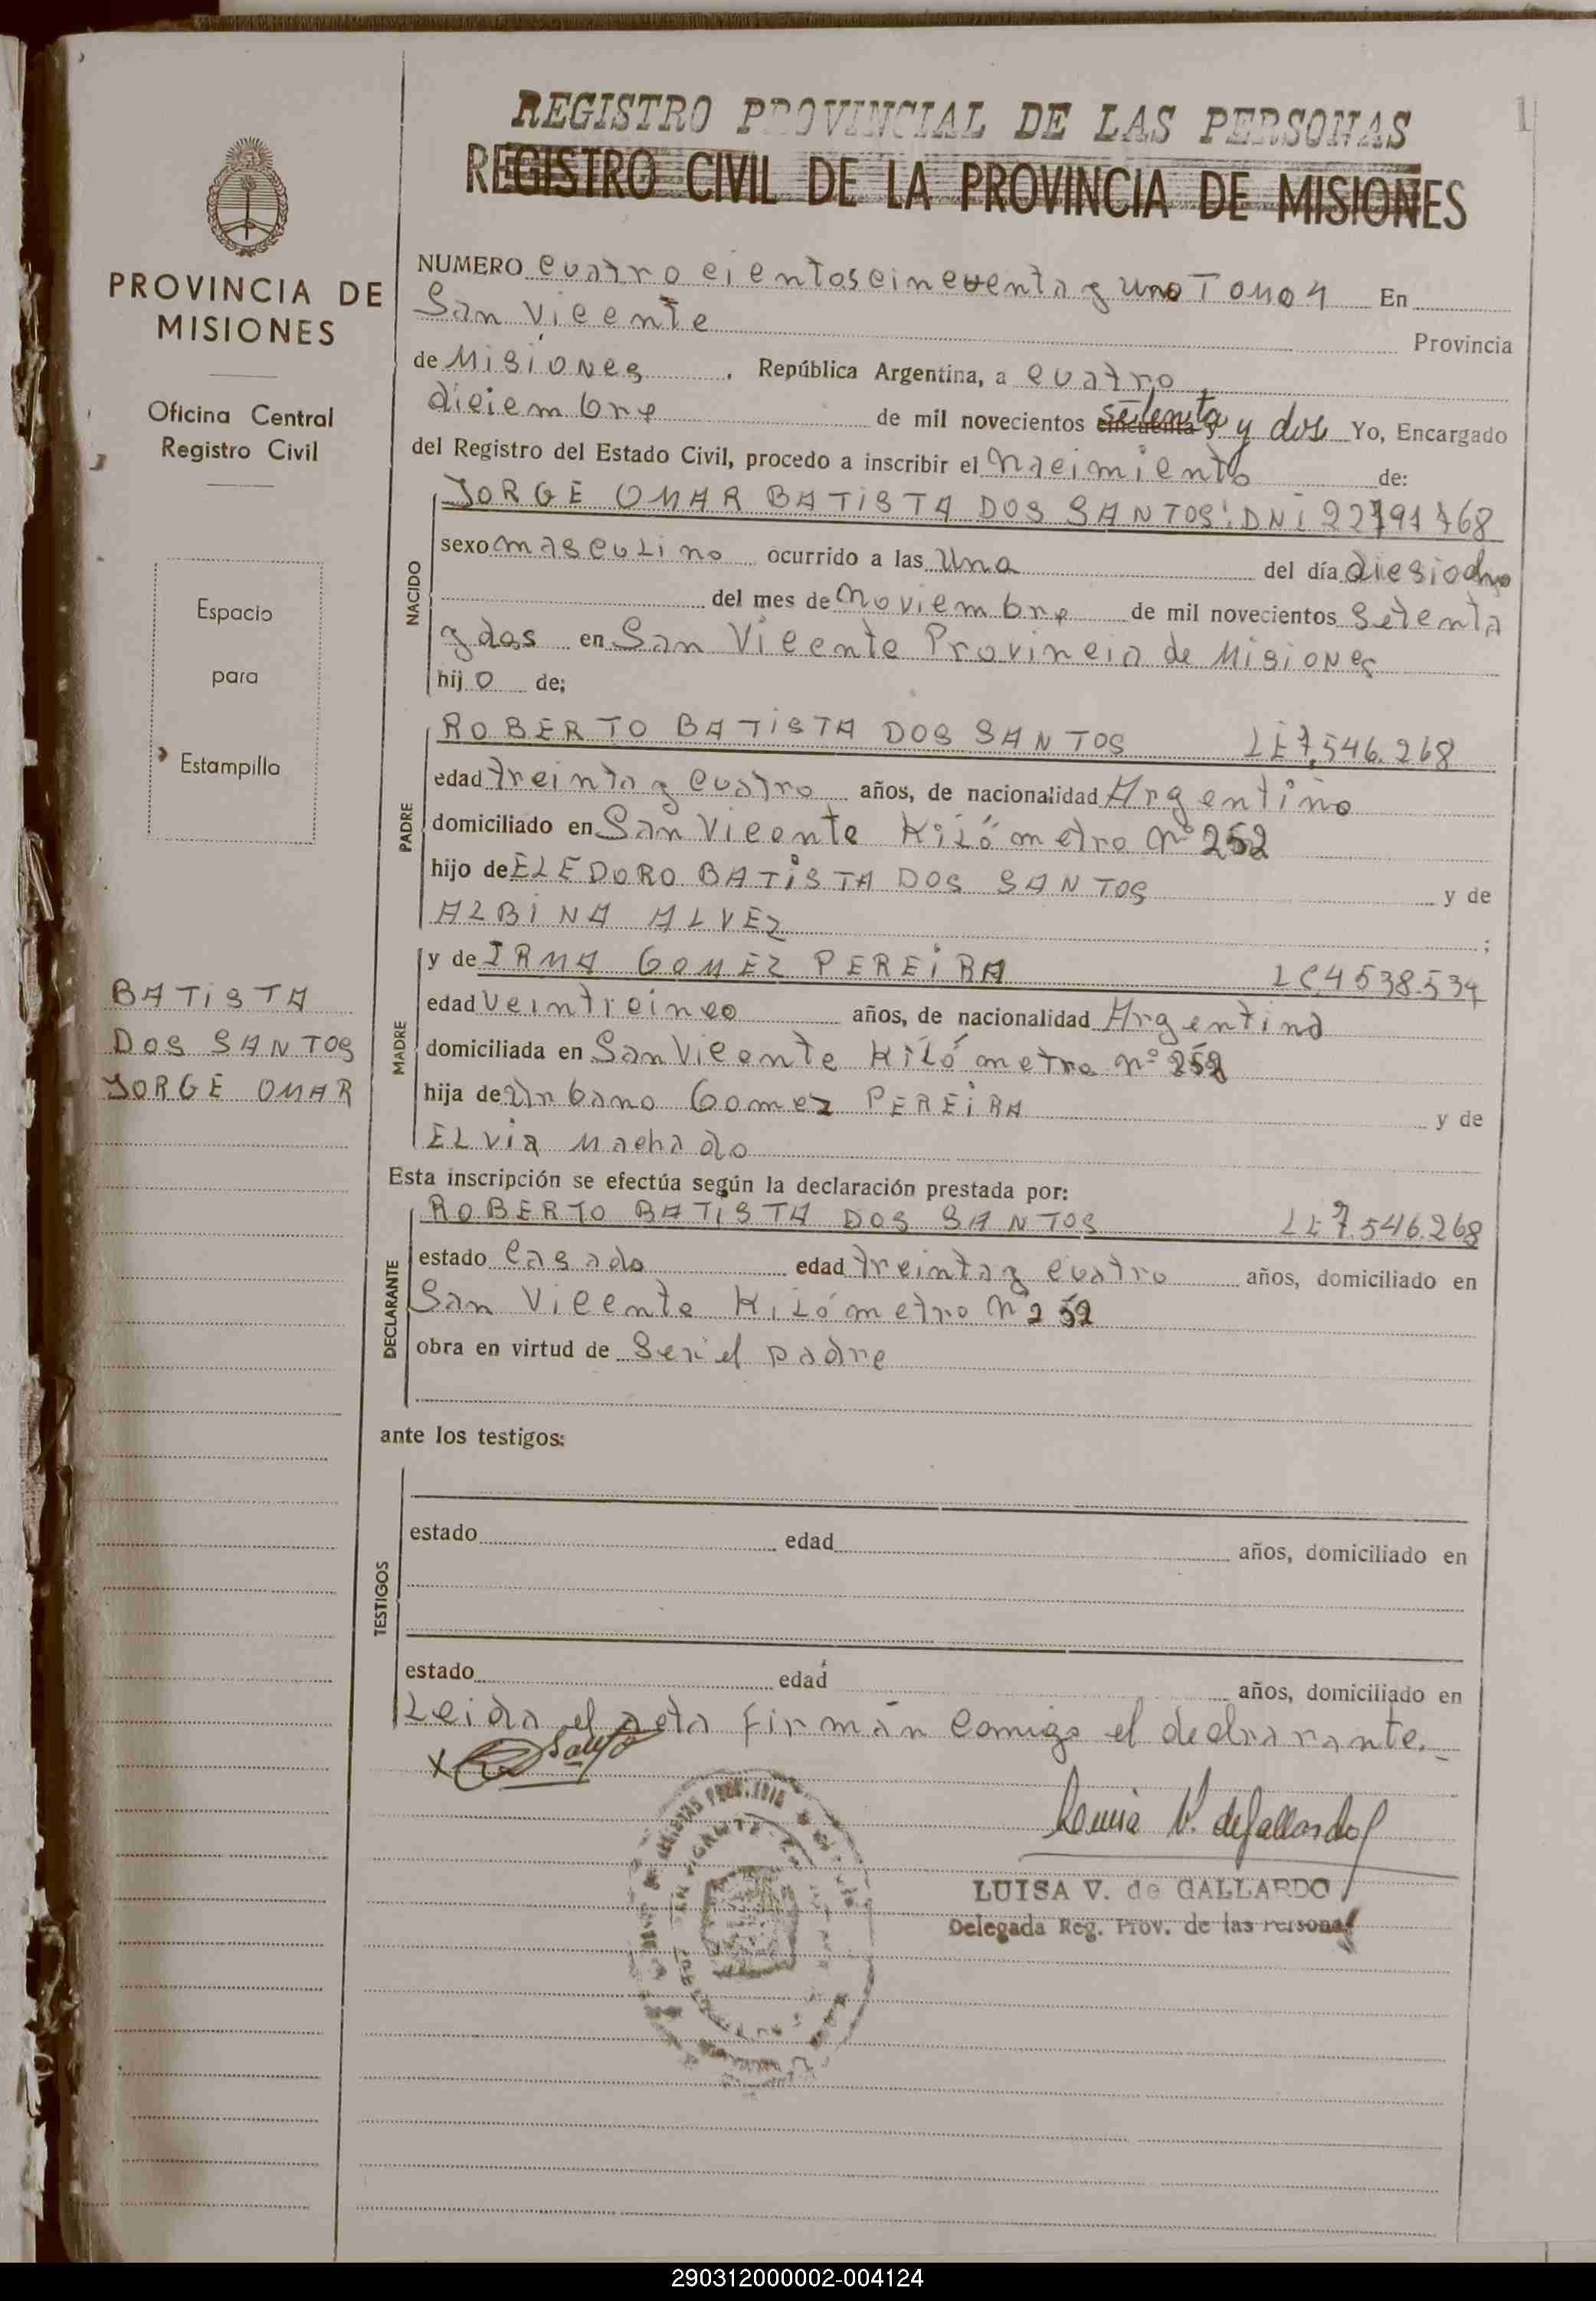 REGISTRO PROVINCIAL DE LAS PERSONAS
REGISTRO CIVIL DE LA PROVINCIA DE MISIONES
PROVINCIA DE
MISIONES
Oficina Central
Registro Civil
Espacio
para
Estampilla
BATISTA
DOS SANTOS
JORGE OMAR
NUMERO cuatro cientos cincuenta y uno TOMO 4 En
San Vicente Provincia
de Misiones, República Argentina, a cuatro
diciembre de mil novecientos cincuenta y setenta y dos Yo, Encargado
del Registro del Estado Civil, procedo a inscribir el nacimiento de:
NACIDO
JORGE OMAR BATISTA DOS SANTOS: DNI 22791768
sexo masculino ocurrido a las una del día diesiocho
del mes de noviembre de mil novecientos setenta
y dos en San Vicente Provincia de Misiones
hijo de;
PADRE
ROBERTO BATISTA DOS SANTOS LE 7,546.268
edad treinta y cuatro años, de nacionalidad Argentino
domiciliado en San Vicente Kilómetro Nº 252
hijo de ELEDORO BATISTA DOS SANTOS y de
ALBINA ALVEZ ;
MADRE
y de IRMA GOMEZ PEREIRA LC 4538.534
edad veinticinco años, de nacionalidad Argentina
domiciliada en San Vicente Kilómetro nº 252
hija de Urbano Gomez PEREIRA y de
ELVIA Machado
Esta inscripción se efectúa según la declaración prestada por:
DECLARANTE
ROBERTO BATISTA DOS SANTOS LE 7.546.268
estado casado edad treinta y cuatro años, domiciliado en
San Vicente Kilómetro Nº 252
obra en virtud de ser el padre
ante los testigos:
TESTIGOS
estado edad años, domiciliado en
estado edad años, domiciliado en
Leida el acta firman comigo el declarante.
LUISA V. de GALLARDO
Delegada Reg. Prov. de las Personas
290312000002-004124